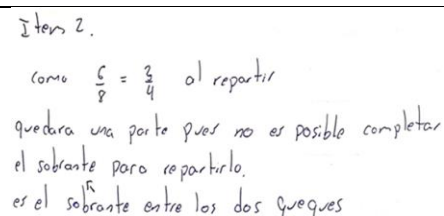 Item 2.
como 6/8 = 3/4 al repartir
quedara una parte pues no es posible completar
el sobrante para repartirlo.
es el sobrante entre los dos queques